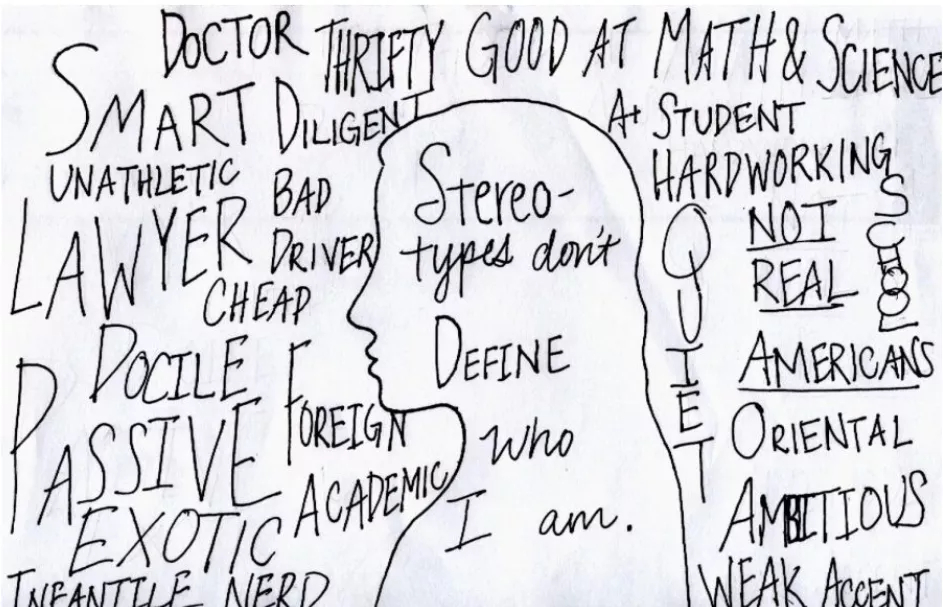 DOCTOR THRIFTY GOOD AT MATH & SCIENCE
SMART DILIGENT
A+ STUDENT
UNATHLETIC BAD
HARDWORKING
LAWYER DRIVER
CHEAP
DOCILE FOREIGN
PASSIVE
ACADEMIC
EXOTIC
INFANTILE NERD
Stereo-
types don't
DEFINE
who
I am.
QUIET
NOT
REAL
AMERICANS
ORIENTAL
AMBITIOUS
WEAK ACCENT